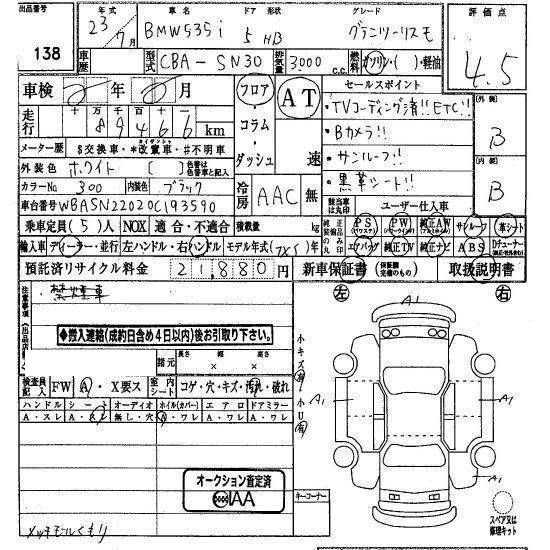 出品番号 138
年式 23年 7月
車名 BMW535i
ドア 形状 5 HB
グレード グランツーリスモ
評価点 4.5
車歴
型式 CBA-SN30
排気量 3000 c.c.
燃料 ガソリン・( )・軽油
車検 年 月
フロア・コラム・ダッシュ
AT 速
セールスポイント
TVコーディング済!! ETC!!
Bカメラ!!
サンルーフ!!
黒革シート!!
外装 B
内装 B
走行 十 万 千 百 十 一
89466 km
メーター歴 $交換車・*改竄車・#不明車
外装色 ホワイト ( ) 色替車は色替車と記入
カラーNo 300 内装色 ブラック
冷房 AAC 無
該当車は丸印 ユーザー仕入車
車台番号 WBASN22020C193590
乗車定員 (5)人 NOX 適合・不適合 積載量 kg
純正装備品のみ丸印
PS (パワステ) PW (パワーウィンドウ) 純正AW サンルーフ 革シート
輸入車 ディーラー・並行 左ハンドル・右ハンドル モデル年式
エアバッグ 純正TV 純正ナビ ABS Dチューナー
預託済リサイクル料金 21,880円
新車保証書 取扱説明書
注意事項 禁煙車
◆搬入連絡(成約日含め4日以内)後お引取り下さい。
諸元 長さ 幅 高さ × ×
左 右
A1
A1
A1
A1
小キズ有
小U有
検査員記入 FW A・X要ス 室内シート コゲ・穴・キズ・汚れ・破れ
ハンドル シート オーディオ ホイル(カバー) エアロ ドアミラー
A・スレ A・スレ 無し・穴 A・ワレ A・ワレ A・ワレ
オークション査定済
IAA
キーコーナー
スペア又は修理キット
メッキモールくもり